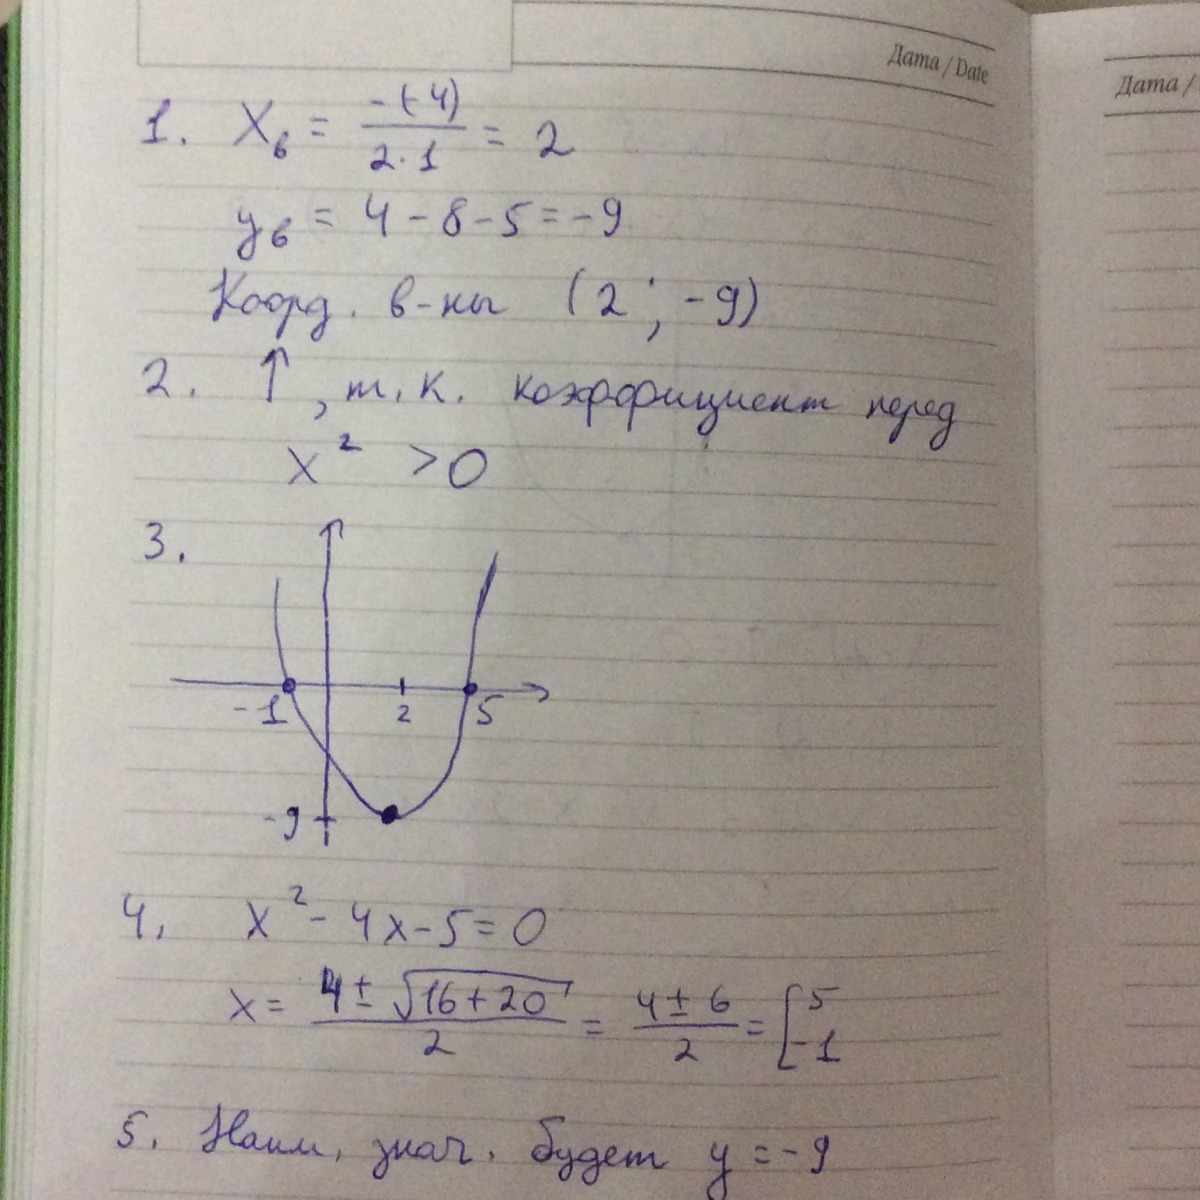 Дата / Date
Дата /
1. Xв = -(-4) / 2·1 = 2
yв = 4 - 8 - 5 = -9
Коорд. в-ны (2; -9)
2. ↑, т.к. коэффициент перед
x² > 0
3.
-1 2 5
-9
4. x² - 4x - 5 = 0
x = 4 ± √16+20 / 2 = 4 ± 6 / 2 = [5 -1
5. Наим. знач. будет y = -9